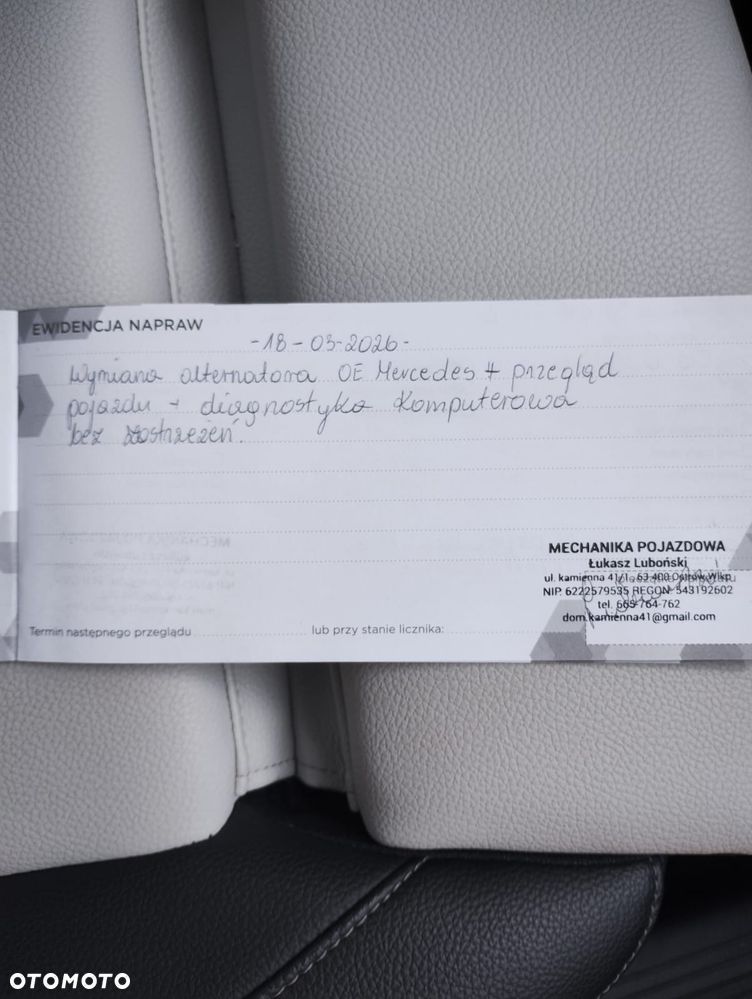 EWIDENCJA NAPRAW
-18-03-2026-
Wymiana alternatora OE Mercedes + przegląd
pojazdu + diagnostyka komputerowa
bez zastrzeżeń.
MECHANIKA POJAZDOWA
Łukasz Luboński
ul. kamienna 41/1, 63-400 Ostrów Wlkp
NIP 6222579535 REGON 543192602
tel. 665-764-762
dom.kamienna41@gmail.com
Termin następnego przeglądu
lub przy stanie licznika:
OTOMOTO